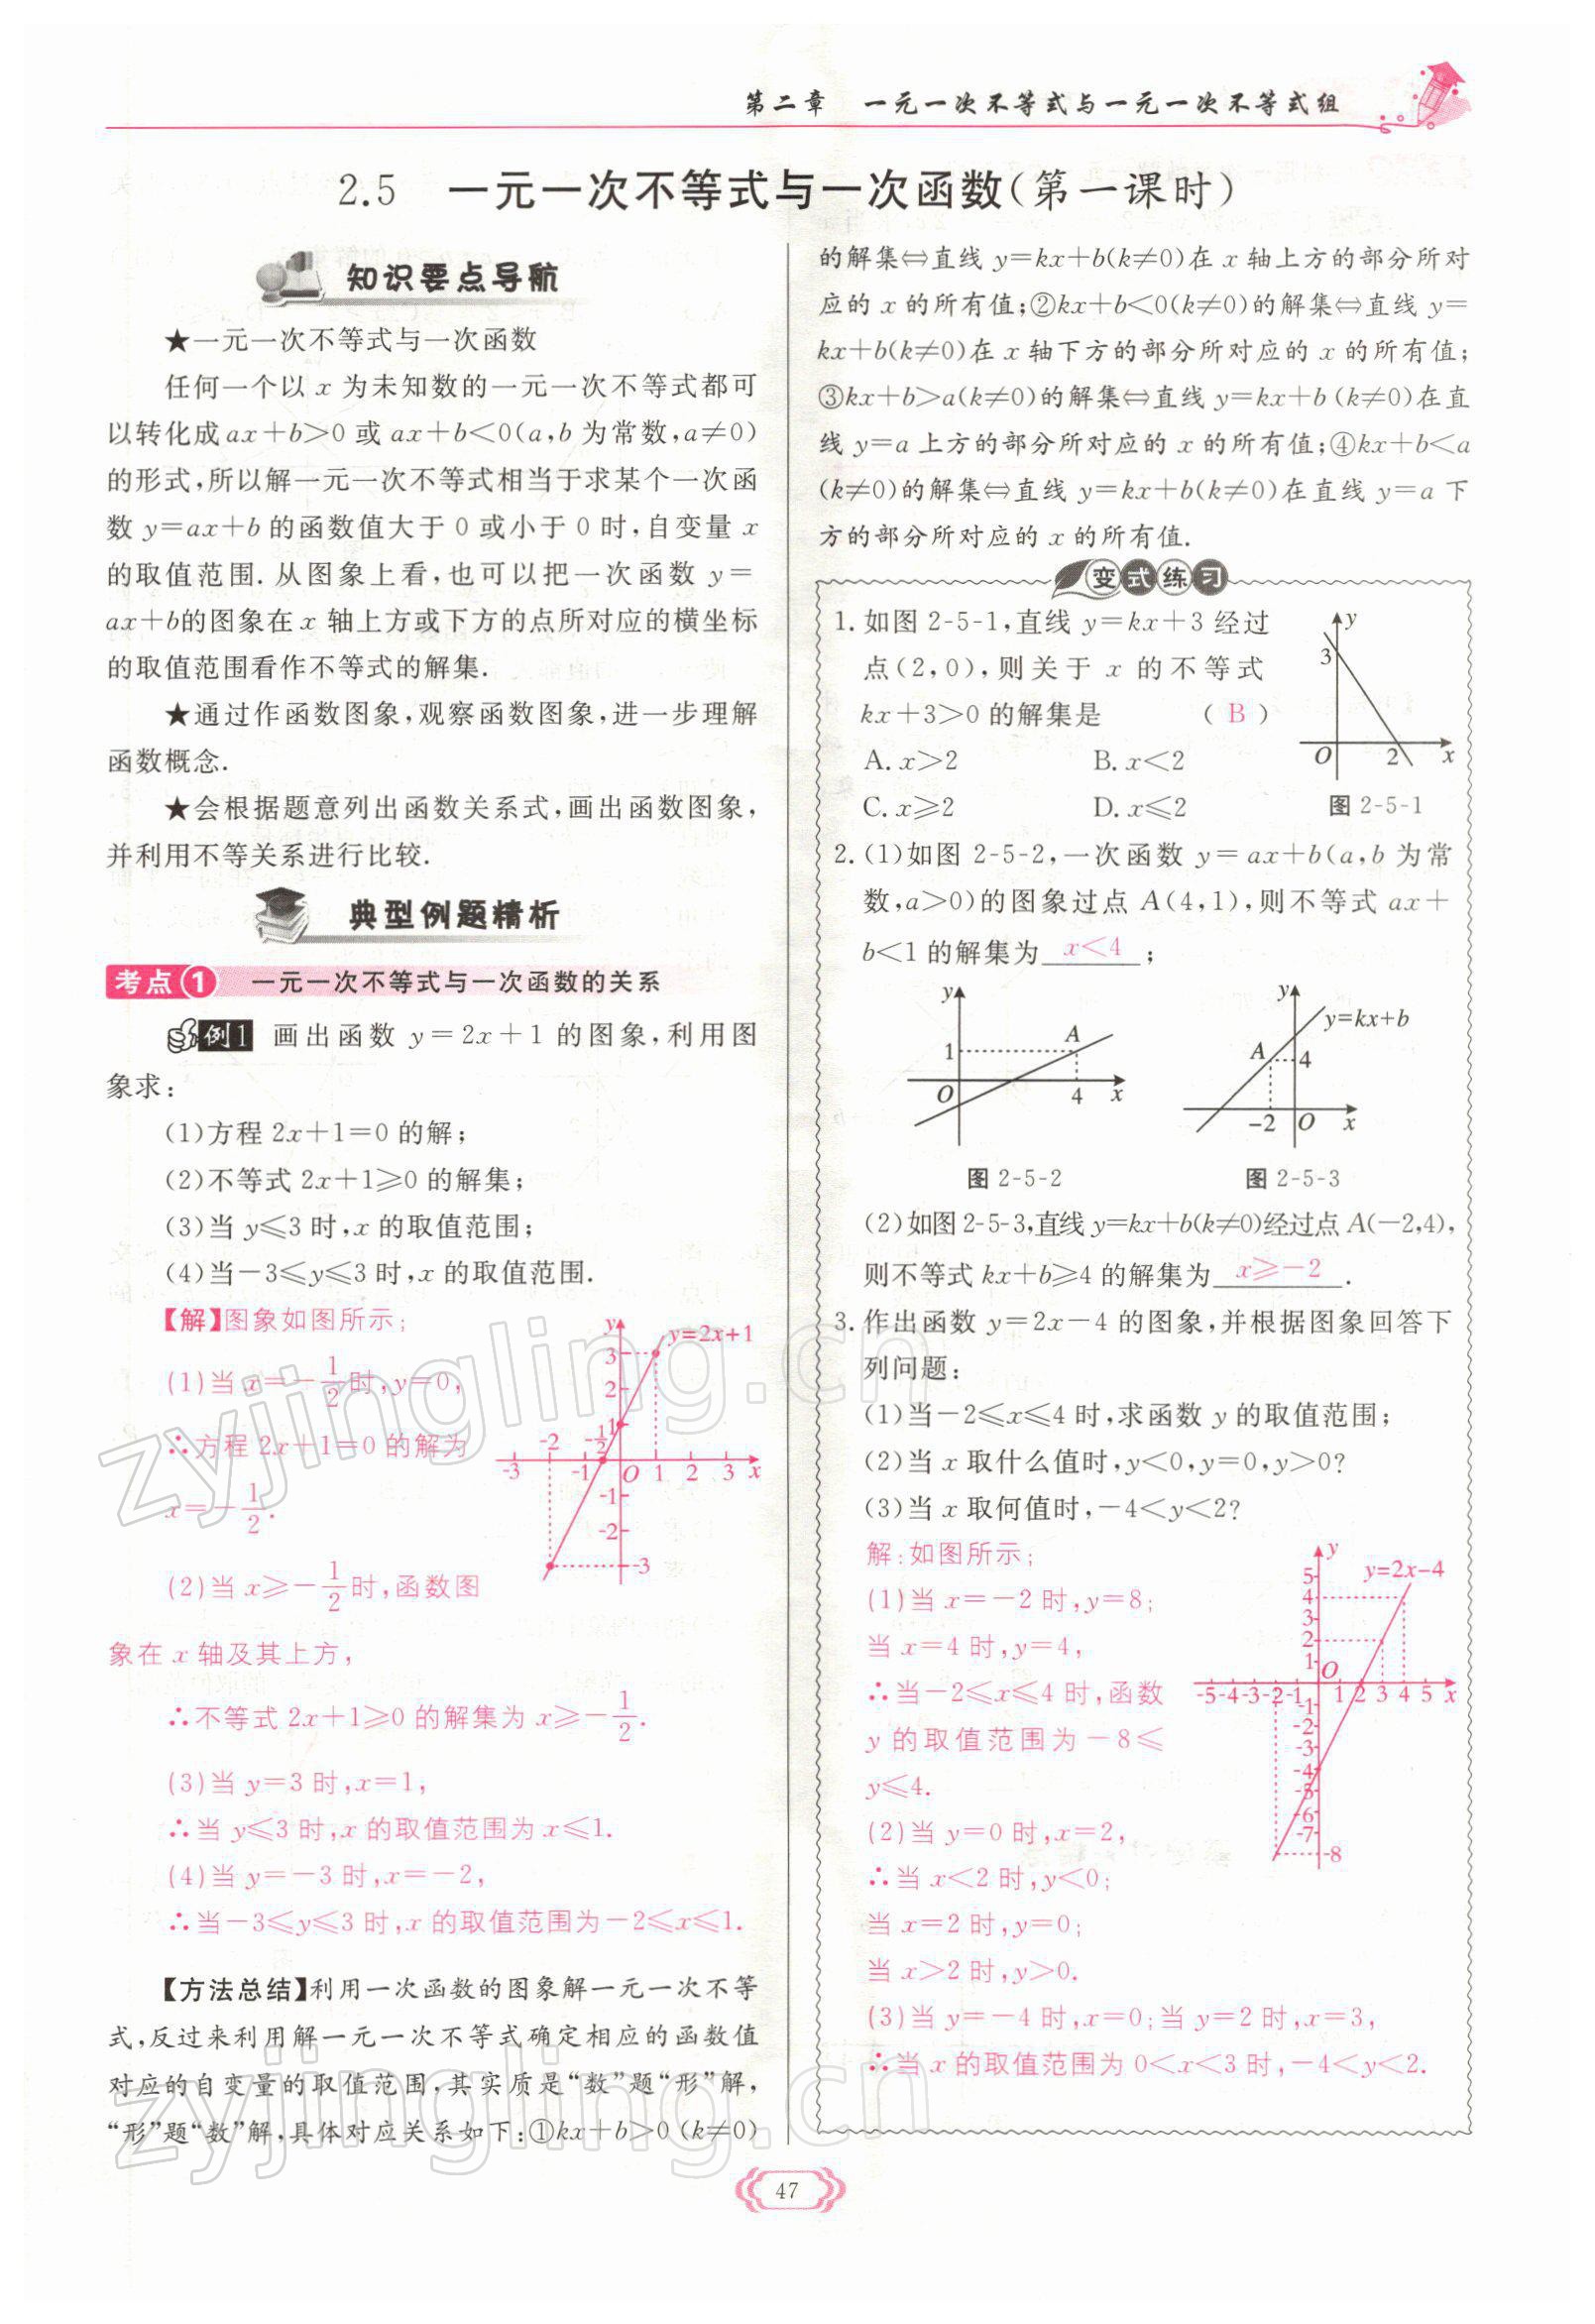 第二章 一元一次不等式与一元一次不等式组
2.5 一元一次不等式与一次函数(第一课时)
知识要点导航
★一元一次不等式与一次函数
任何一个以 x 为未知数的一元一次不等式都可
以转化成 ax+b>0 或 ax+b<0(a,b 为常数,a≠0)
的形式,所以解一元一次不等式相当于求某个一次函
数 y=ax+b 的函数值大于 0 或小于 0 时,自变量 x
的取值范围.从图象上看,也可以把一次函数 y=
ax+b的图象在 x 轴上方或下方的点所对应的横坐标
的取值范围看作不等式的解集.
★通过作函数图象,观察函数图象,进一步理解
函数概念.
★会根据题意列出函数关系式,画出函数图象,
并利用不等关系进行比较.
典型例题精析
考点1 一元一次不等式与一次函数的关系
例1 画出函数 y=2x+1 的图象,利用图
象求:
(1)方程 2x+1=0 的解;
(2)不等式 2x+1≥0 的解集;
(3)当 y≤3 时,x 的取值范围;
(4)当-3≤y≤3 时,x 的取值范围.
【解】图象如图所示;
(1)当 x=-1/2时,y=0,
∴方程 2x+1=0 的解为
x=-1/2.
(2)当 x≥-1/2时,函数图
象在 x 轴及其上方,
∴不等式 2x+1≥0 的解集为 x≥-1/2.
(3)当 y=3 时,x=1,
∴当 y≤3 时,x 的取值范围为 x≤1.
(4)当 y=-3 时,x=-2,
∴当-3≤y≤3 时,x 的取值范围为-2≤x≤1.
y
y=2x+1
3
2
1
-2 -1/2
-3 -1 O 1 2 3 x
-1
-2
-3
【方法总结】利用一次函数的图象解一元一次不等
式,反过来利用解一元一次不等式确定相应的函数值
对应的自变量的取值范围,其实质是“数”题“形”解,
“形”题“数”解,具体对应关系如下:①kx+b>0 (k≠0)
的解集⇔直线 y=kx+b(k≠0)在 x 轴上方的部分所对
应的 x 的所有值;②kx+b<0(k≠0)的解集⇔直线 y=
kx+b(k≠0)在 x 轴下方的部分所对应的 x 的所有值;
③kx+b>a(k≠0)的解集⇔直线 y=kx+b (k≠0)在直
线 y=a 上方的部分所对应的 x 的所有值;④kx+b<a
(k≠0)的解集⇔直线 y=kx+b(k≠0)在直线 y=a 下
方的部分所对应的 x 的所有值.
变式练习
1.如图 2-5-1,直线 y=kx+3 经过
点(2,0),则关于 x 的不等式
kx+3>0 的解集是 ( B )
A.x>2 B.x<2
C.x≥2 D.x≤2
y
3
O 2 x
图 2-5-1
2.(1)如图 2-5-2,一次函数 y=ax+b(a,b 为常
数,a>0)的图象过点 A(4,1),则不等式 ax+
b<1 的解集为 x<4 ;
y
1
A
O 4 x
图 2-5-2
y
y=kx+b
A 4
-2 O x
图 2-5-3
(2)如图 2-5-3,直线 y=kx+b(k≠0)经过点 A(-2,4),
则不等式 kx+b≥4 的解集为 x≥-2 .
3.作出函数 y=2x-4 的图象,并根据图象回答下
列问题:
(1)当-2≤x≤4 时,求函数 y 的取值范围;
(2)当 x 取什么值时,y<0,y=0,y>0?
(3)当 x 取何值时,-4<y<2?
解:如图所示;
(1)当 x=-2 时,y=8;
当 x=4 时,y=4,
∴当-2≤x≤4 时,函数
y 的取值范围为-8≤
y≤4.
(2)当 y=0 时,x=2,
∴当 x<2 时,y<0;
当 x=2 时,y=0;
当 x>2 时,y>0.
(3)当 y=-4 时,x=0;当 y=2 时,x=3,
∴当 x 的取值范围为 0<x<3 时,-4<y<2.
y
y=2x-4
5
4
3
2
1
O
-5-4-3-2-1 1 2 3 4 5 x
-1
-2
-3
-4
-5
-6
-7
-8
47
zyjingling.cn
zyjingling.cn